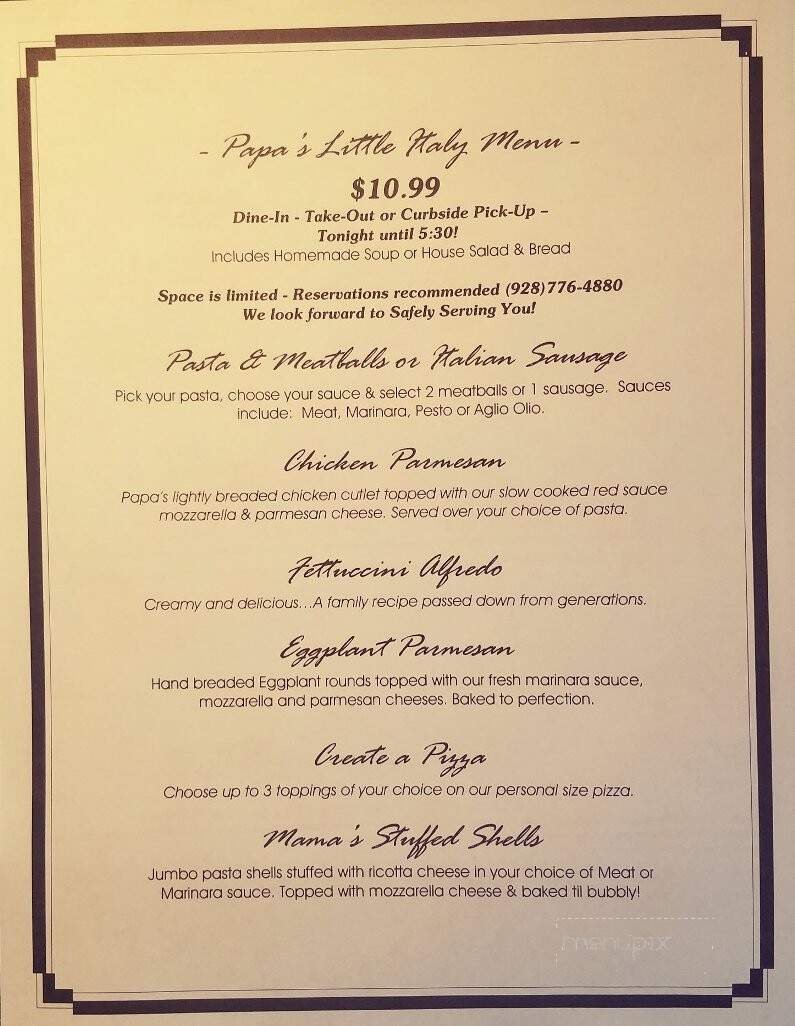 - Papa's Little Italy Menu -
$10.99
Dine-In - Take-Out or Curbside Pick-Up –
Tonight until 5:30!
Includes Homemade Soup or House Salad & Bread
Space is limited - Reservations recommended (928)776-4880
We look forward to Safely Serving You!
Pasta & Meatballs or Italian Sausage
Pick your pasta, choose your sauce & select 2 meatballs or 1 sausage. Sauces
include: Meat, Marinara, Pesto or Aglio Olio.
Chicken Parmesan
Papa's lightly breaded chicken cutlet topped with our slow cooked red sauce
mozzarella & parmesan cheese. Served over your choice of pasta.
Fettuccini Alfredo
Creamy and delicious...A family recipe passed down from generations.
Eggplant Parmesan
Hand breaded Eggplant rounds topped with our fresh marinara sauce,
mozzarella and parmesan cheeses. Baked to perfection.
Create a Pizza
Choose up to 3 toppings of your choice on our personal size pizza.
Mama's Stuffed Shells
Jumbo pasta shells stuffed with ricotta cheese in your choice of Meat or
Marinara sauce. Topped with mozzarella cheese & baked til bubbly!
menupix